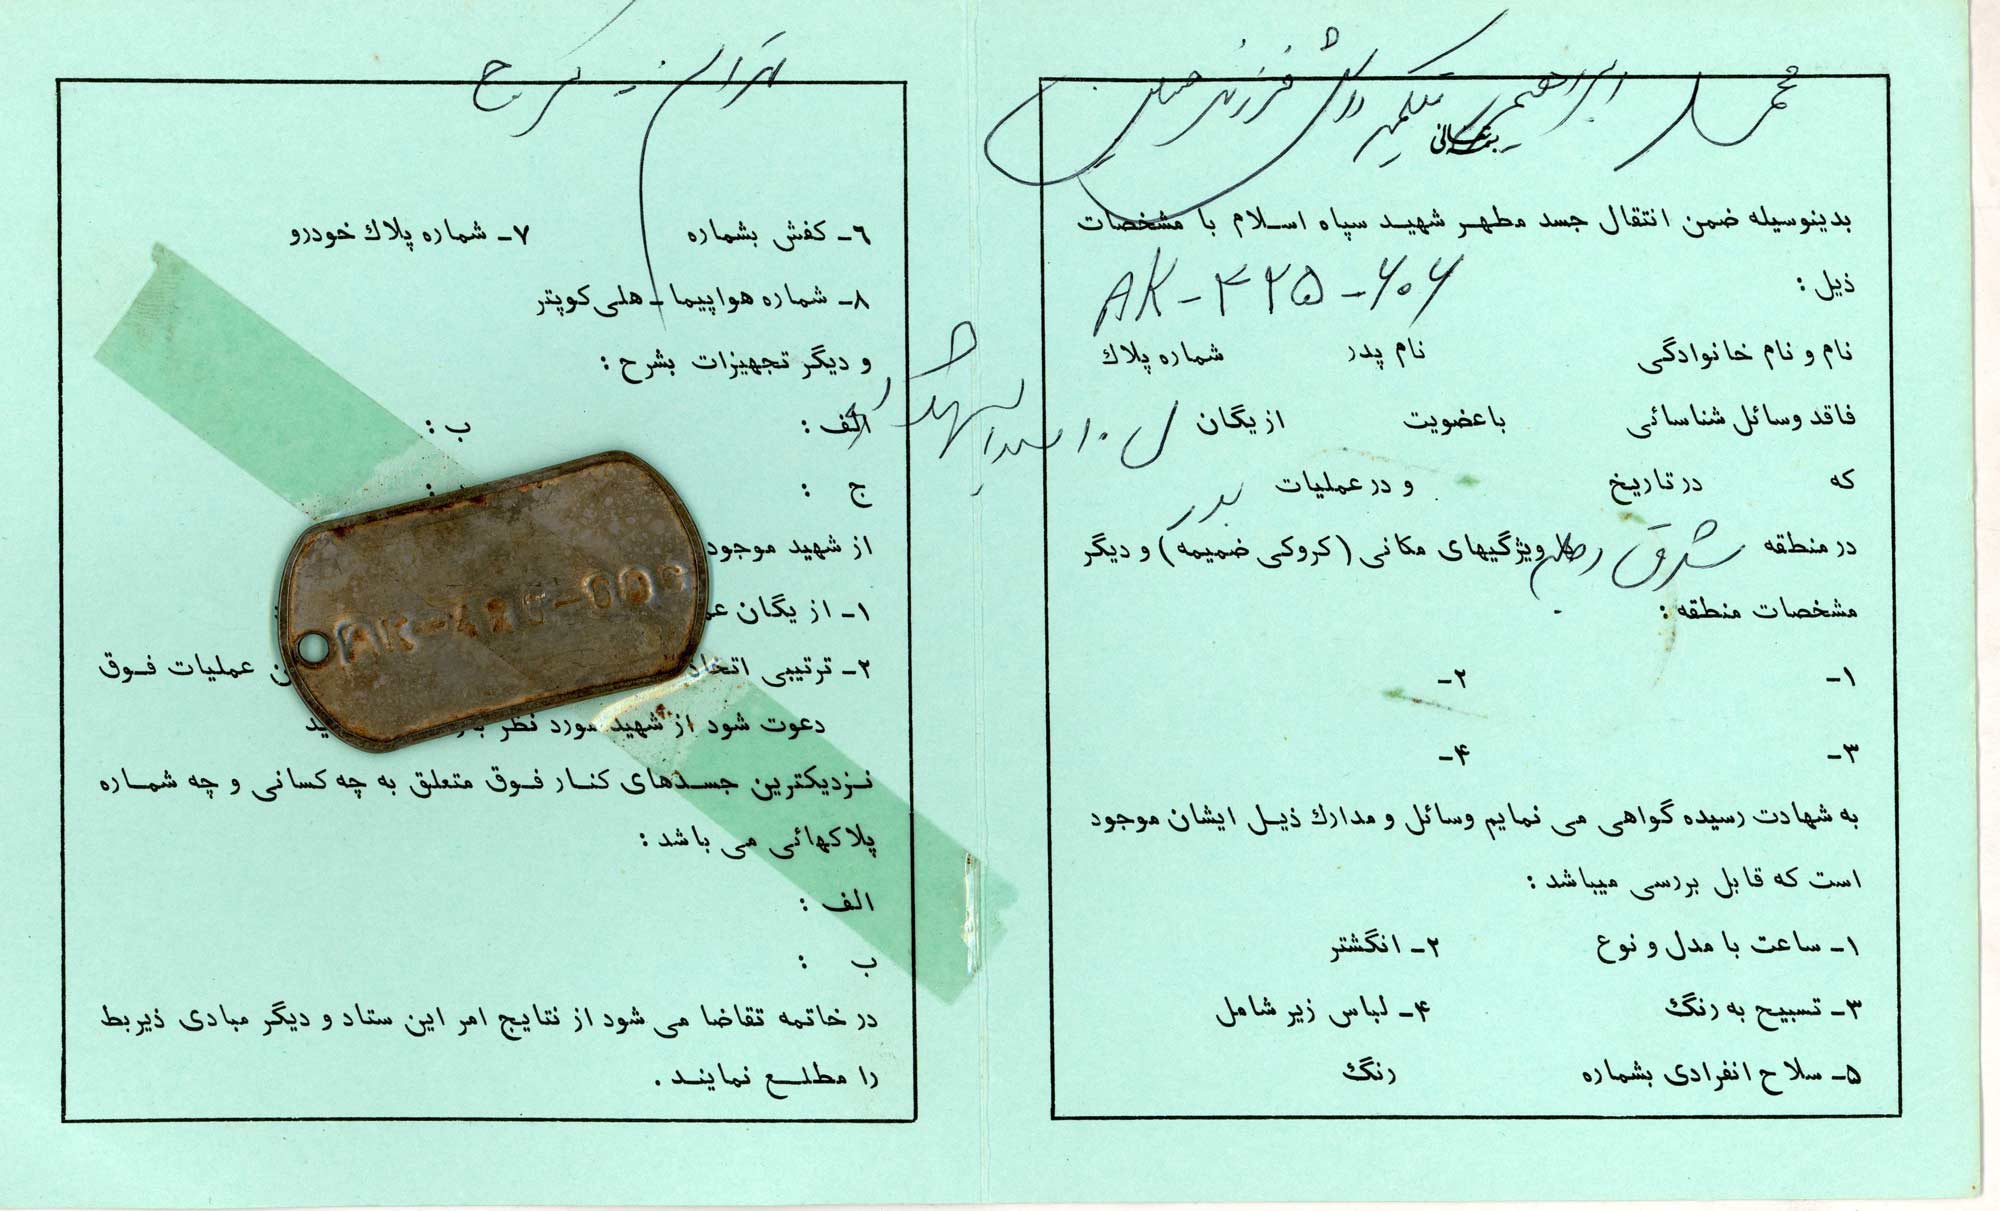 محمد ابراهیمی فرزند
بسمه تعالی
بدینوسیله ضمن انتقال جسد مطهر شهید سپاه اسلام با مشخصات
ذیل : AK-۴۲۵-۶۰۶
نام و نام خانوادگی نام پدر شماره پلاك
فاقد وسائل شناسائی باعضویت از یگان ل ۱۰ سیدالشهدا
که در تاریخ و در عملیات بدر
در منطقه شرق دجله ویژگیهای مکانی (کروکی ضمیمه) و دیگر
مشخصات منطقه :
۱- ۲-
۳- ۴-
به شهادت رسیده گواهی می نمایم وسائل و مدارك ذیل ایشان موجود
است که قابل بررسی میباشد :
۱- ساعت با مدل و نوع ۲- انگشتر
۳- تسبیح به رنگ ۴- لباس زیر شامل
۵- سلاح انفرادی بشماره رنگ
تهران - کرج
۶- کفش بشماره ۷- شماره پلاك خودرو
۸- شماره هواپیما - هلی کوپتر
و دیگر تجهیزات بشرح :
الف : ب :
ج : :
از شهید موجود
۱- از یگان
۲- ترتیبی عملیات فوق
دعوت شود از شهید مورد نظر
نزدیکترین جسدهای کنار فوق متعلق به چه کسانی و چه شماره
پلاکهائی می باشد :
الف :
ب :
در خاتمه تقاضا می شود از نتایج امر این ستاد و دیگر مبادی ذیربط
را مطلع نمایند .